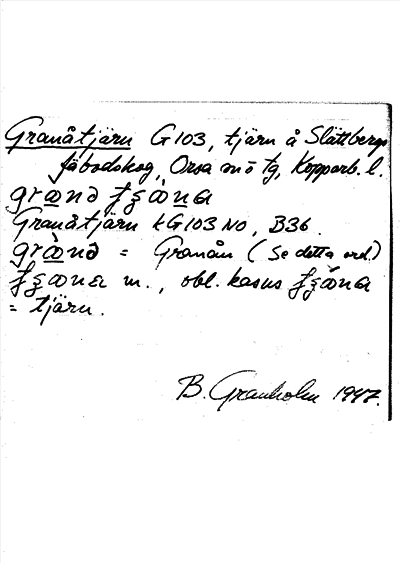 Granåtjärn G103, tjärn å Slättbergs
fäbodskog, Orsa sn o tg, Kopparb. l.
Granåtjärn kG103 NO, B36.
= Granån (Se detta ord)
m., obl. kasus
= tjärn.
B. Granholm 1947.